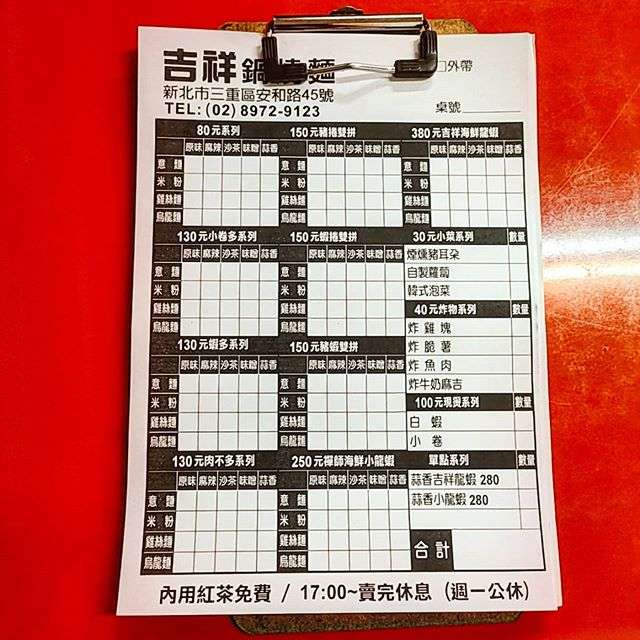 吉祥鍋燒麵
口外帶
新北市三重區安和路45號
TEL: (02) 8972-9123
桌號
80元系列 150元豬捲雙拼 380元吉祥海鮮龍蝦
原味 麻辣 沙茶 味噌 蒜香 原味 麻辣 沙茶 味噌 蒜香 原味 麻辣 沙茶 味噌 蒜香
意麵 意麵 意麵
米粉 米粉 米粉
雞絲麵 雞絲麵 雞絲麵
烏龍麵 烏龍麵 烏龍麵
130元小卷多系列 150元蝦捲雙拼 30元小菜系列 數量
原味 麻辣 沙茶 味噌 蒜香 原味 麻辣 沙茶 味噌 蒜香 煙燻豬耳朵
意麵 意麵 自製蘿蔔
米粉 米粉 韓式泡菜
雞絲麵 雞絲麵 40元炸物系列 數量
烏龍麵 烏龍麵 炸雞塊
130元蝦多系列 150元豬蝦雙拼 炸脆薯
原味 麻辣 沙茶 味噌 蒜香 原味 麻辣 沙茶 味噌 蒜香 炸魚肉
意麵 意麵 炸牛奶麻吉
米粉 米粉 100元現燙系列 數量
雞絲麵 雞絲麵 白蝦
烏龍麵 烏龍麵 小卷
130元肉不多系列 250元禪師海鮮小龍蝦 單點系列 數量
原味 麻辣 沙茶 味噌 蒜香 原味 麻辣 沙茶 味噌 蒜香 蒜香吉祥龍蝦 280
意麵 意麵 蒜香小龍蝦 280
米粉 米粉
雞絲麵 雞絲麵 合計
烏龍麵 烏龍麵
內用紅茶免費 / 17:00~賣完休息 (週一公休)